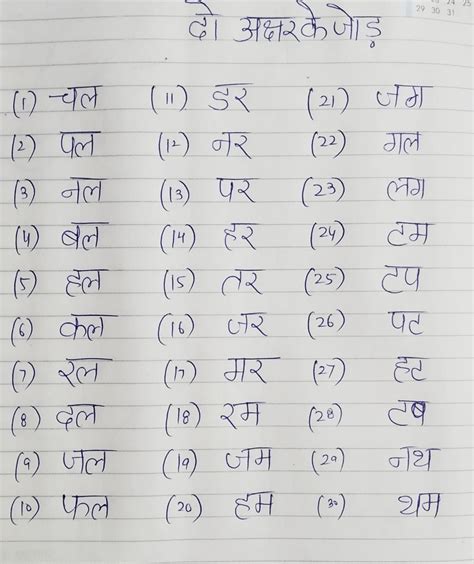 24 25
29 30 31
दो अक्षर के जोड़
(1) चल (11) डर (21) जग
(2) पल (12) नर (22) गल
(3) नल (13) पर (23) लग
(4) बल (14) हर (24) टम
(5) हल (15) तर (25) टप
(6) कल (16) जर (26) पट
(7) रल (17) मर (27) हट
(8) दल (18) रम (28) टब
(9) जल (19) जम (29) नथ
(10) फल (20) हम (30) थम